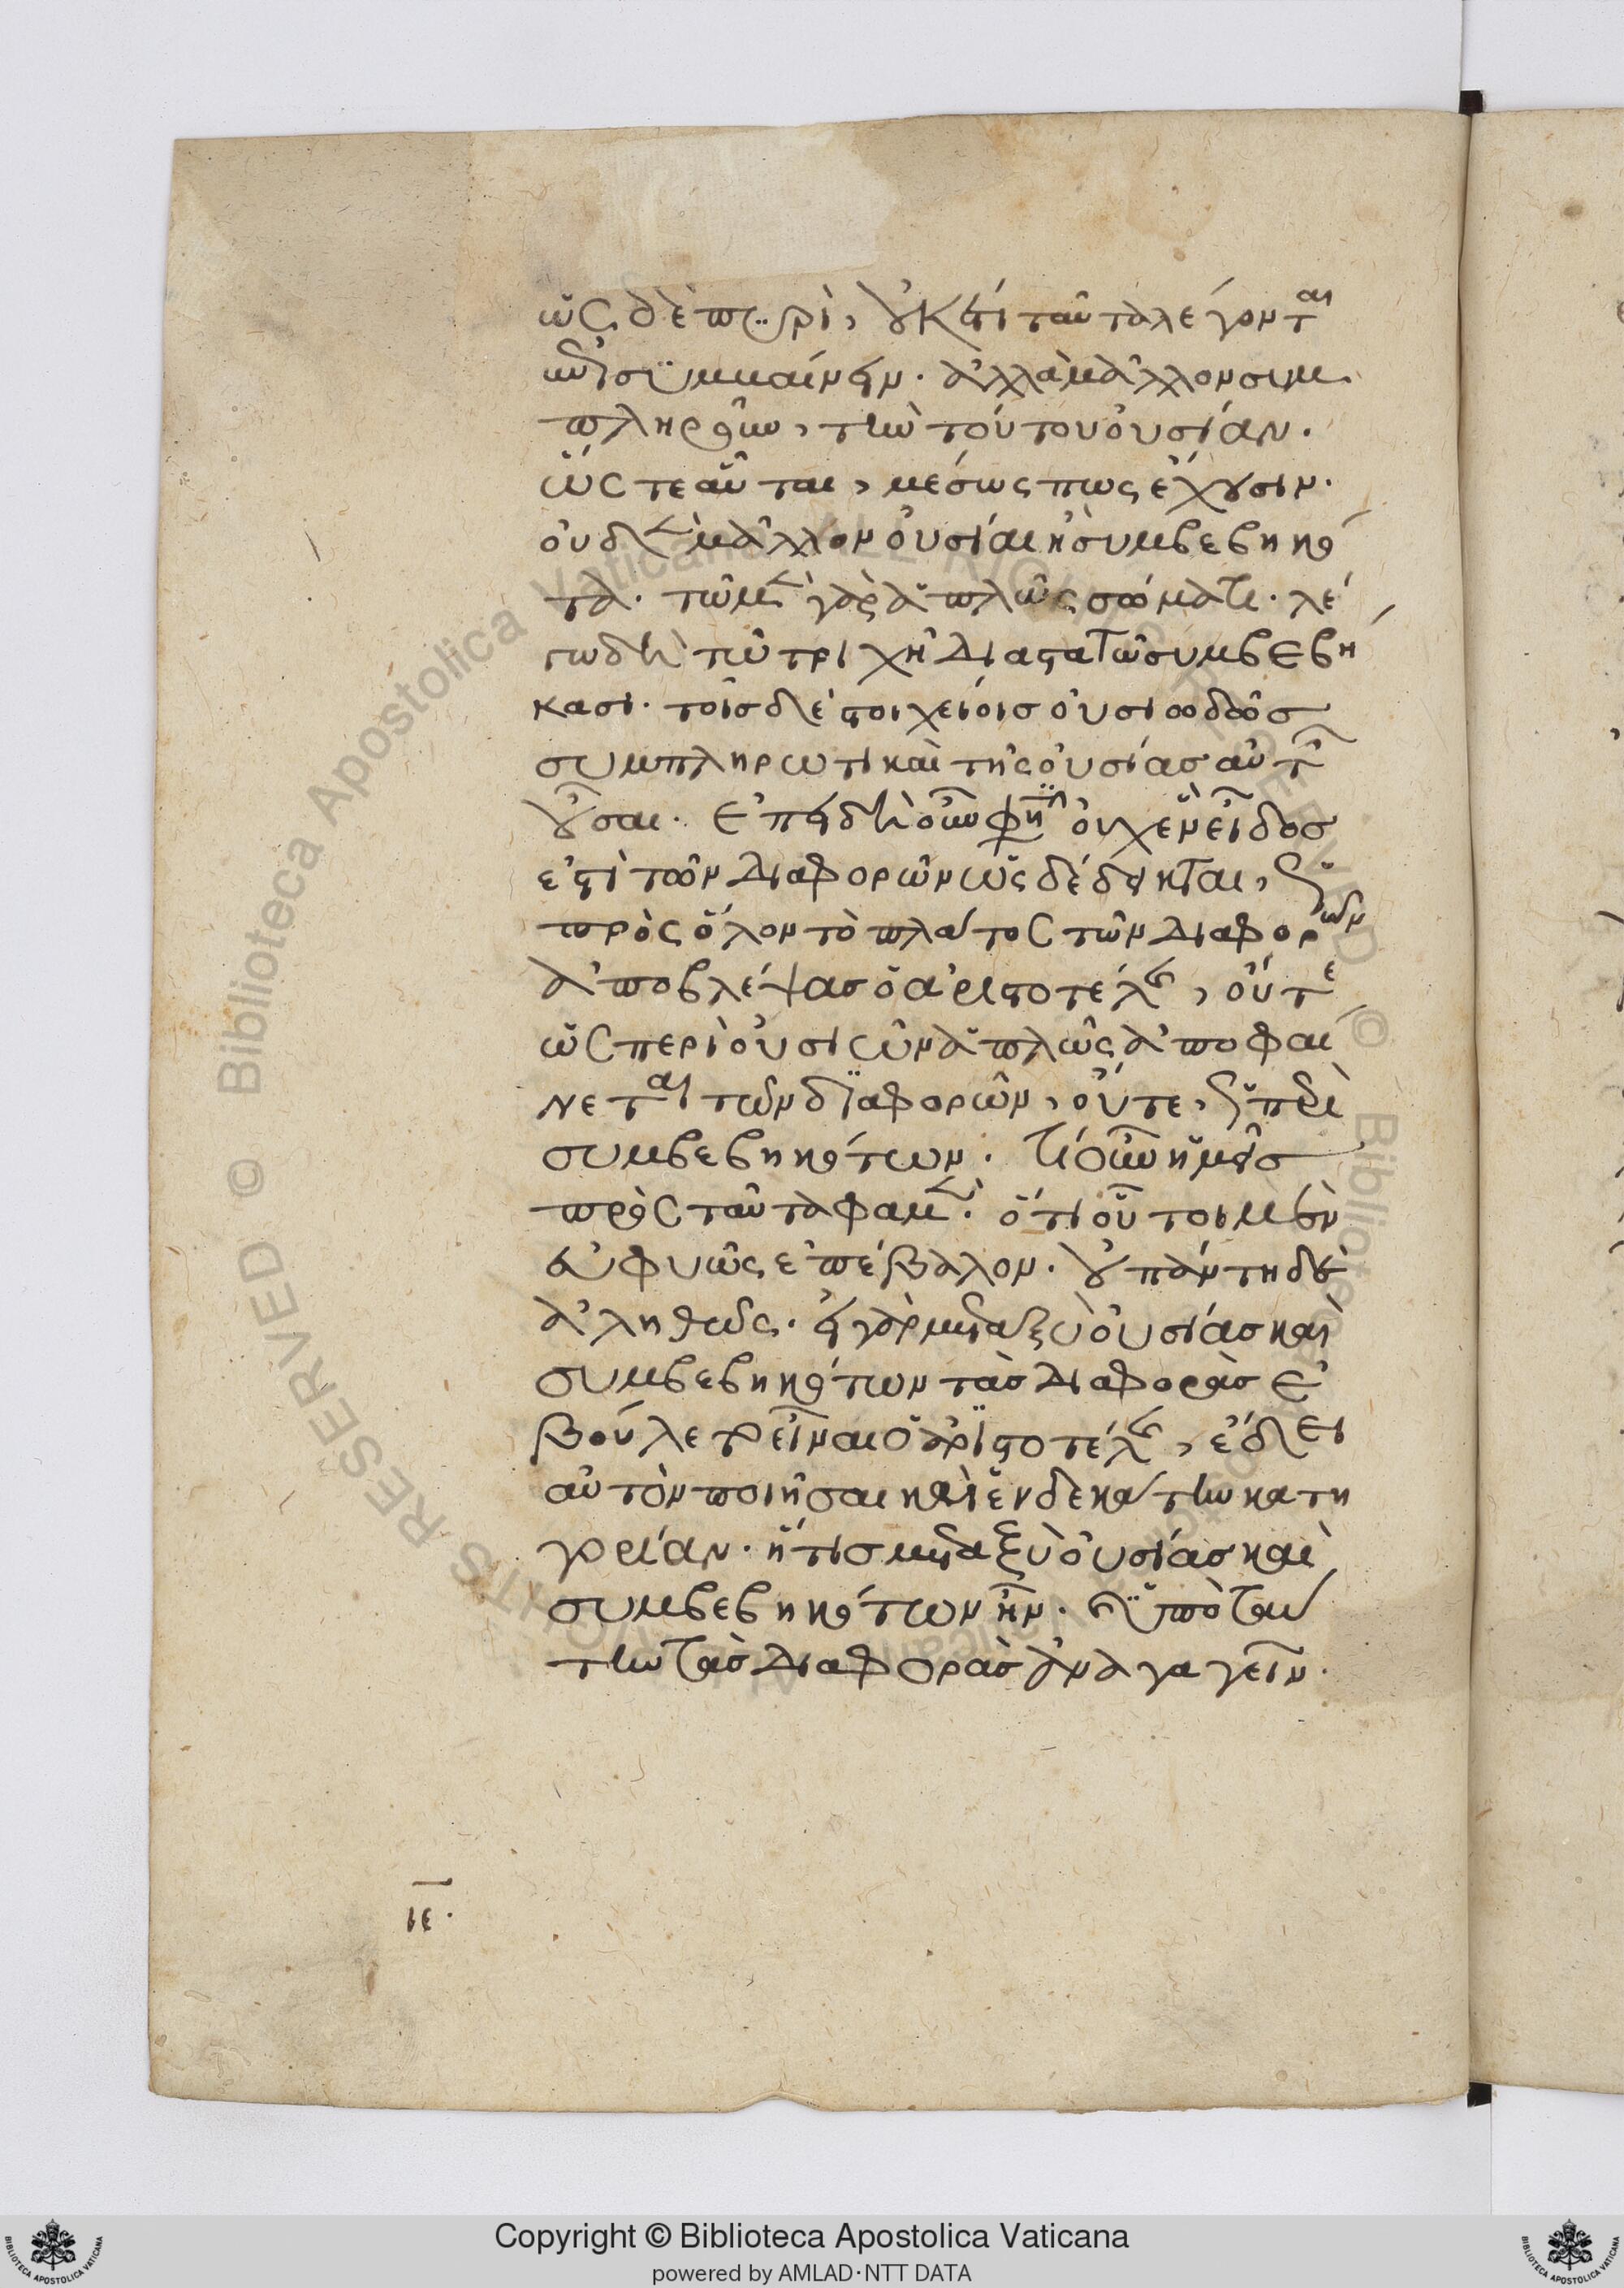 ὡς δὲ πυρὶ, οὐκέτι ταῦτα λέγονται
αὐτῶ συμβαίνειν. ἀλλὰ μᾶλλον συμ
πληροῦν, τὴν τούτου οὐσίαν.
ὥστε αὗται, μέσως πως ἔχουσιν.
οὐδὲν μᾶλλον οὐσίαι ἢ συμβεβηκό
τα. τῶ μὲν γὰρ ἁπλῶς σώματι. λέ
γω δὴ τῶ τριχῆ διαστατῶ συμβεβή
κασι. τοῖς δὲ στοιχείοις οὐσιωδῶς
συμπληρωτικαὶ τῆς οὐσίας αὐτῶν
οὖσαι. ἐπειδὴ οὖν φησιν οὐχ ἓν εἶδος
ἐστὶ τῶν διαφορῶν ὡς δέδεικται,
πρὸς ὅλον τὸ πλάτος τῶν διαφορῶν
ἀποβλέψας ὁ ἀριστοτέλης, οὔτε
ὡς περὶ οὐσιῶν ἁπλῶς ἀποφαί
νεται τῶν διαφορῶν, οὔτε, ὡς περὶ
συμβεβηκότων. τί οὖν ἡμεῖς
πρὸς ταῦτα φαμέν. ὅτι οὗτοι μὲν
εὐφυῶς ἐπέβαλον. οὐ πάντη δὲ
ἀληθῶς. εἰ γὰρ μεταξὺ οὐσίας καὶ
συμβεβηκότων τὰς διαφορὰς ἐ
βούλετο εἶναι ὁ ἀριστοτέλης, ἔδει
αὐτὸν ποιῆσαι καὶ ἑνδεκάτην κατη
γορίαν. ἥτις μεταξὺ οὐσίας καὶ
συμβεβηκότων ἦν. ὑπὸ ταύ
την τὰς διαφορὰς ἀναγαγεῖν.
ιε.
Copyright © Biblioteca Apostolica Vaticana
powered by AMLAD·NTT DATA